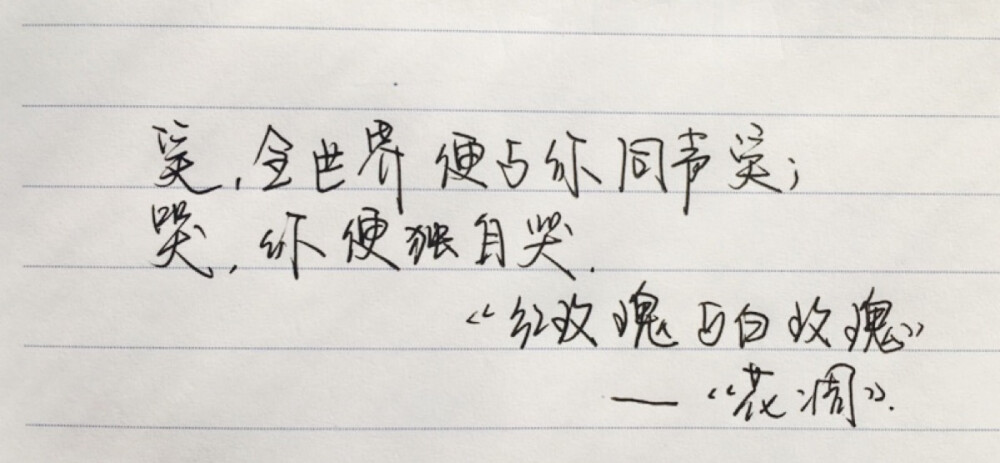 笑,全世界便与你同声笑;
哭,你便独自哭.
《红玫瑰与白玫瑰》
——《花凋》.